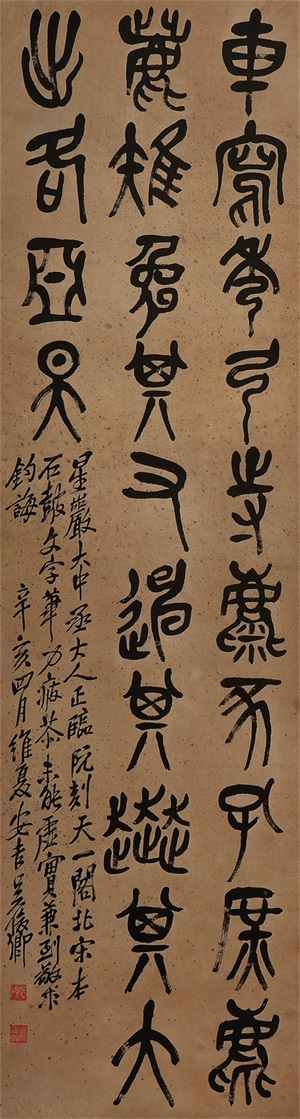 車寫秀弓寺麋豕孔庶麀
鹿雉兔其又其其大
出各亞昊
星巖大中丞大人正臨阮刻天一閣北宋本
石鼓文字筆力疲苶未能虛實兼到敬求
鈞誨 辛亥四月維夏安吉吳俊卿